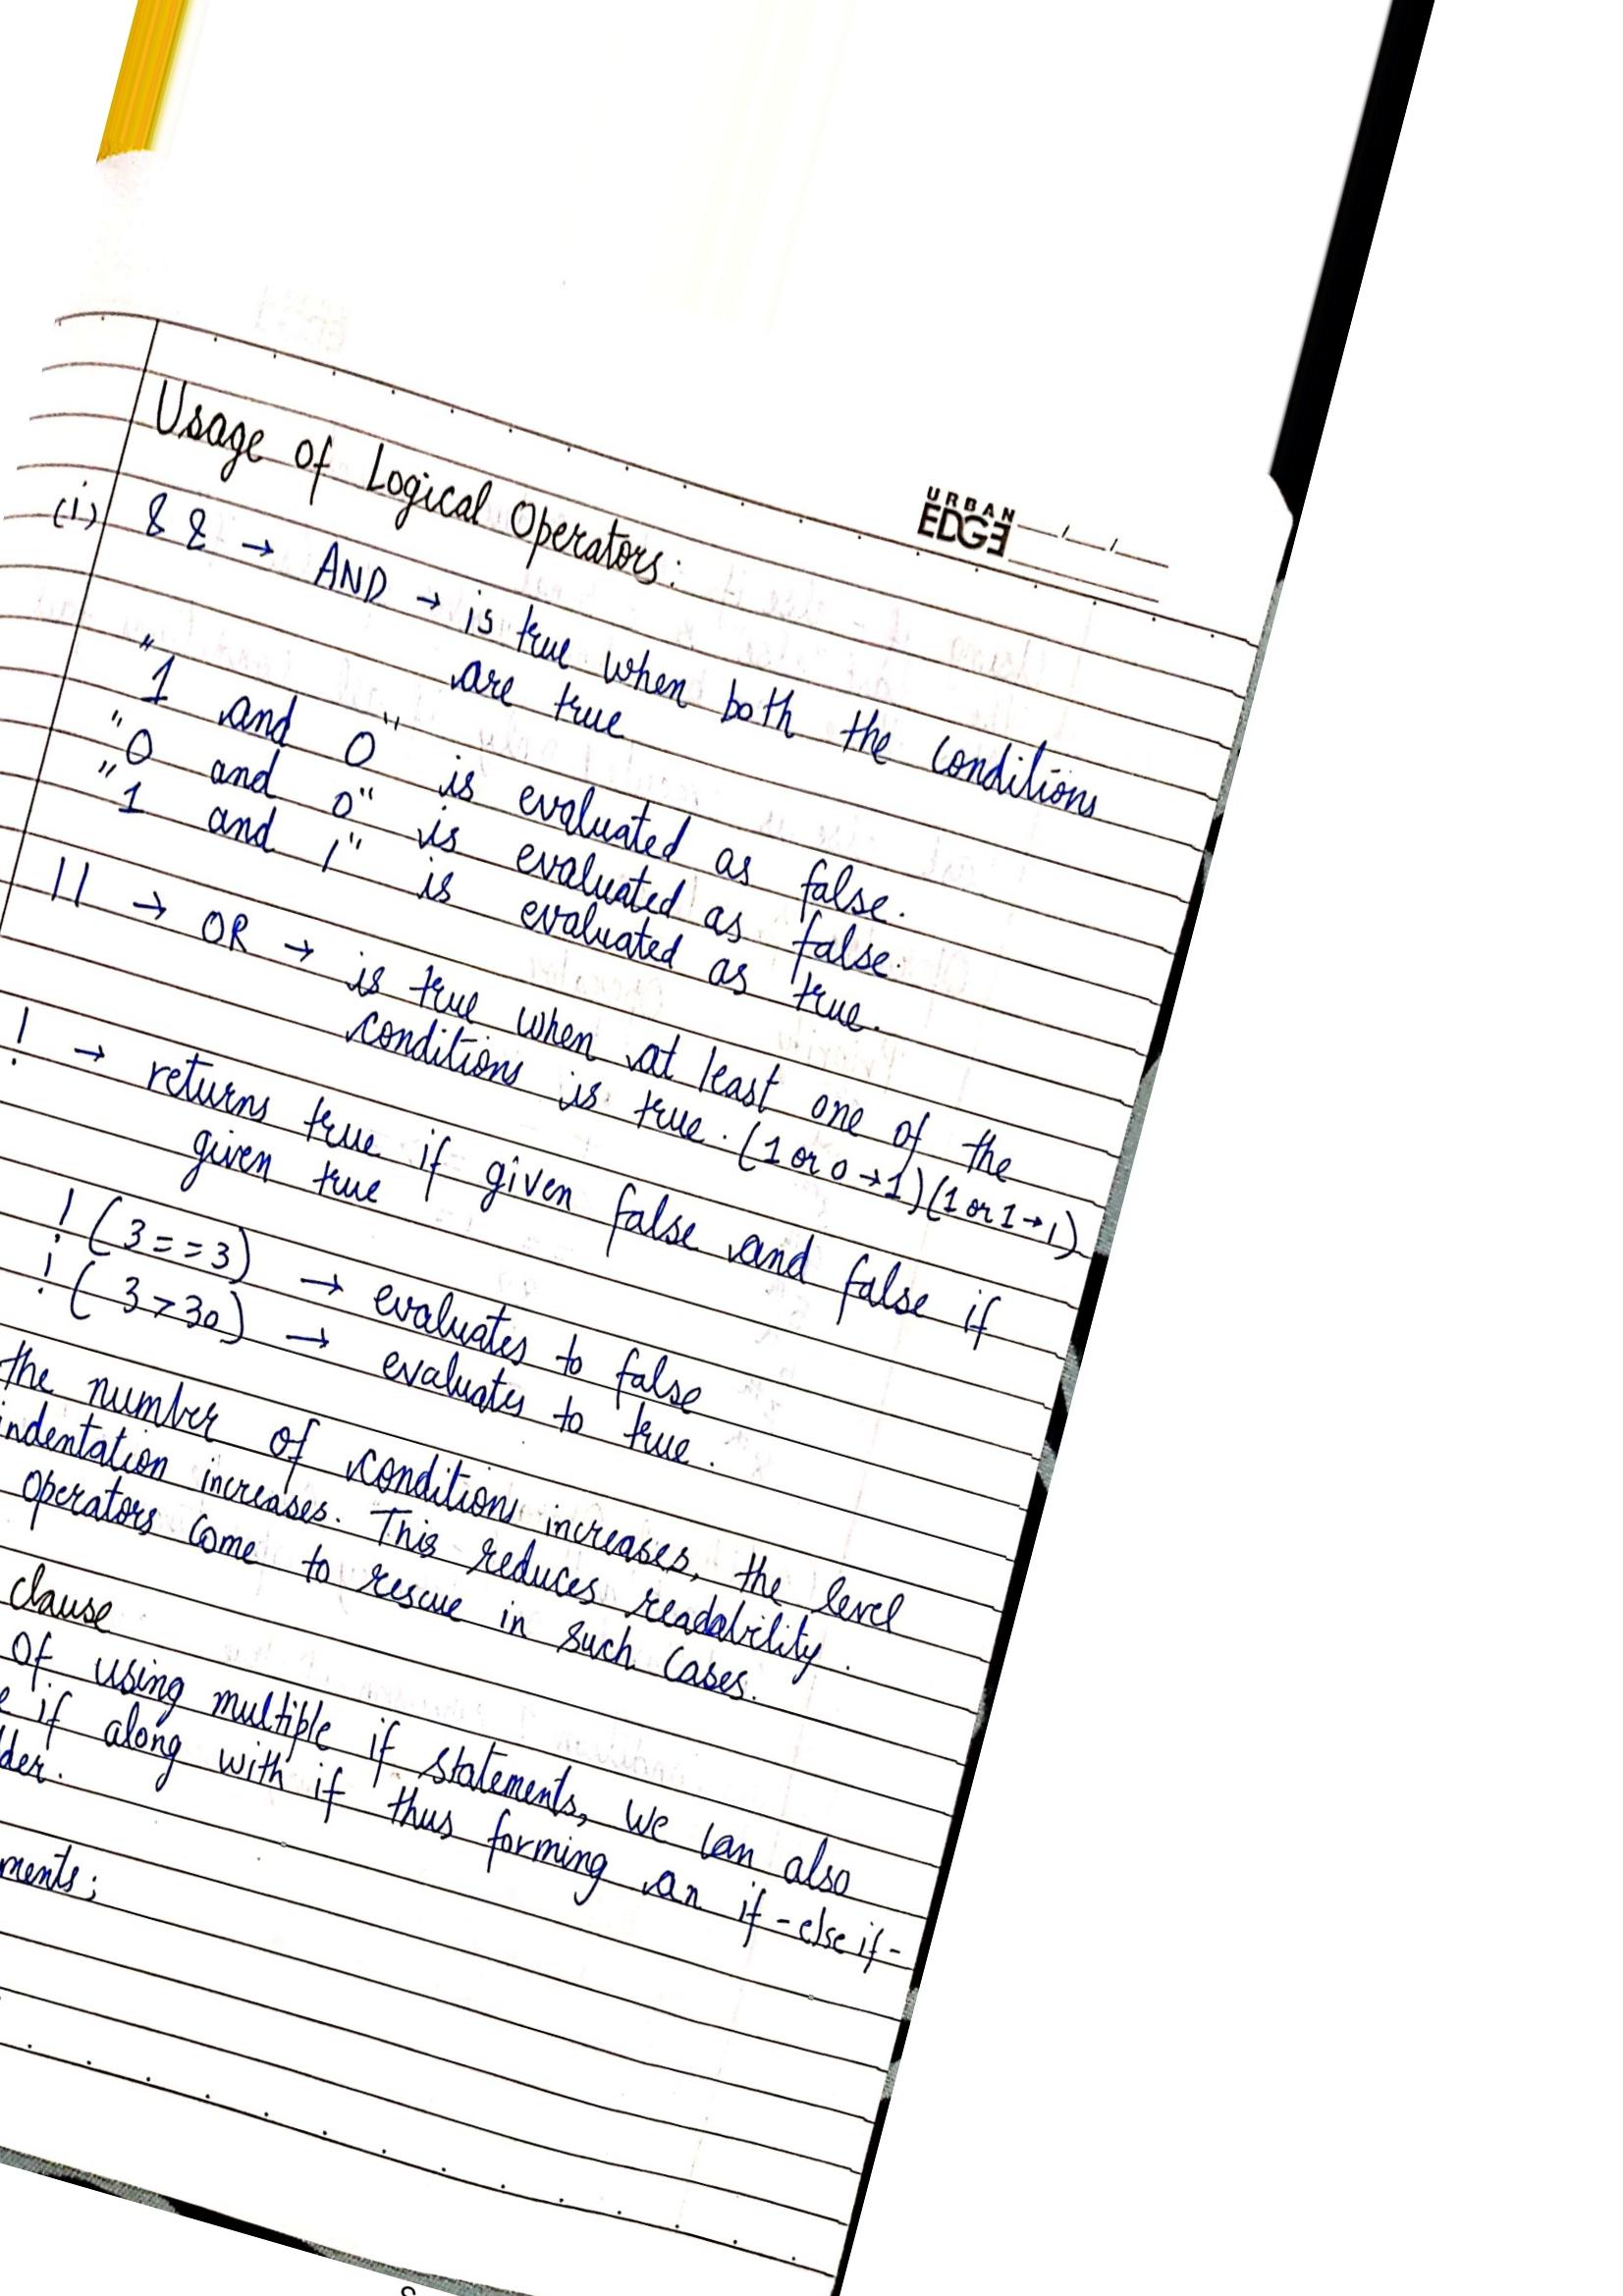 URBAN
EDGE
Usage of Logical Operators:
(i) && → AND → is true when both the conditions
are true
"1 and 0" is evaluated as false.
"0 and 0" is evaluated as false.
"1 and 1" is evaluated as true.
|| → OR → is true when at least one of the
conditions is true. (1 or 0 → 1) (1 or 1 → 1)
! → returns true if given false and false if
given true
! (3==3) → evaluates to false
! (3>30) → evaluates to true.
the number of conditions increases, the level
indentation increases. This reduces readability.
operators come to rescue in such cases.
clause
of using multiple if statements, we can also
if along with if thus forming an if-else if-
der.
ments;